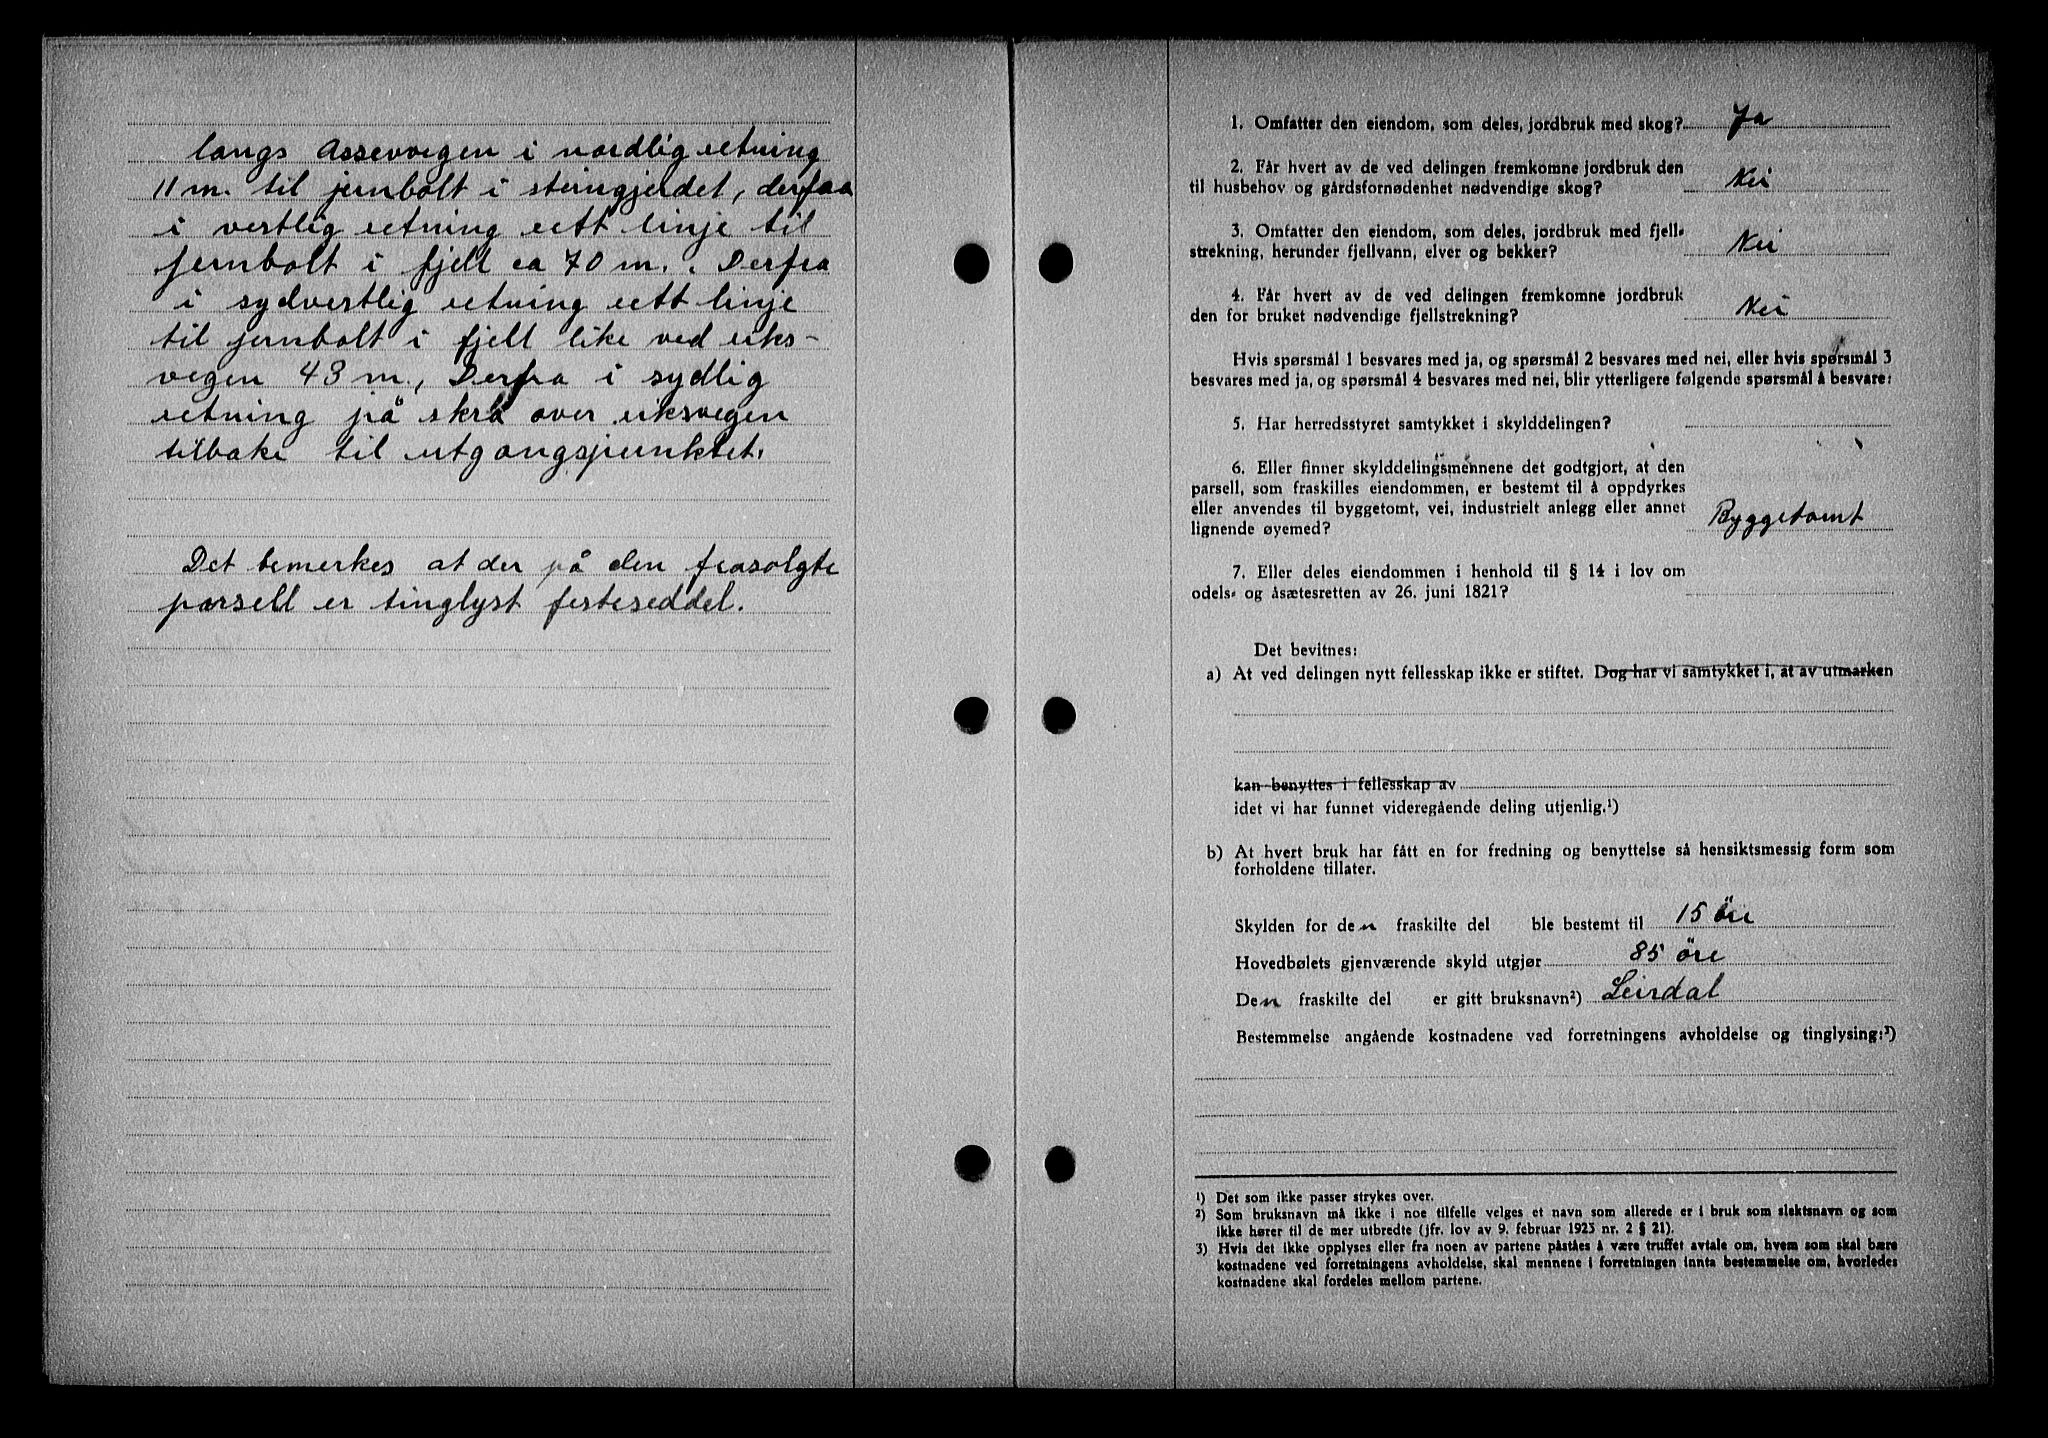 langs Assevoegen i nordlig retning
11 m. til jernbolt i steingjerdet, derfra
i vestlig retning rett linje til
jernbolt i fjell ca 70 m. Derfra
i sydvestlig retning rett linje
til jernbolt i fjell like ved riks-
vegen 43 m., Derfra i sydlig
retning på skrå over riksvegen
tilbake til utgangspunktet.
Det bemerkes at der på den frasolgte
parsell er tinglyst festeseddel.
1. Omfatter den eiendom, som deles, jordbruk med skog? Ja
2. Får hvert av de ved delingen fremkomne jordbruk den
til husbehov og gårdsfornødenhet nødvendige skog? Nei
3. Omfatter den eiendom, som deles, jordbruk med fjell-
strekning, herunder fjellvann, elver og bekker? Nei
4. Får hvert av de ved delingen fremkomne jordbruk
den for bruket nødvendige fjellstrekning? Nei
Hvis spørsmål 1 besvares med ja, og spørsmål 2 besvares med nei, eller hvis spørsmål 3
besvares med ja, og spørsmål 4 besvares med nei, blir ytterligere følgende spørsmål å besvare:
5. Har herredsstyret samtykket i skylddelingen?
6. Eller finner skylddelingsmennene det godtgjort, at den
parsell, som fraskilles eiendommen, er bestemt til å oppdyrkes
eller anvendes til byggetomt, vei, industrielt anlegg eller annet
lignende øyemed? Byggetomt
7. Eller deles eiendommen i henhold til § 14 i lov om
odels- og åsætesretten av 26. juni 1821?
Det bevitnes:
a) At ved delingen nytt fellesskap ikke er stiftet. Dog har vi samtykket i, at av utmarken
kan benyttes i fellesskap av
idet vi har funnet videregående deling utjenlig.¹)
b) At hvert bruk har fått en for fredning og benyttelse så hensiktsmessig form som
forholdene tillater.
Skylden for den fraskilte del ble bestemt til 15 öre
Hovedbølets gjenværende skyld utgjør 85 öre
Den fraskilte del er gitt bruksnavn²) Leirdal
Bestemmelse angående kostnadene ved forretningens avholdelse og tinglysing:³)
¹) Det som ikke passer strykes over.
²) Som bruksnavn må ikke i noe tilfelle velges et navn som allerede er i bruk som slektsnavn og som
ikke hører til de mer utbredte (jfr. lov av 9. februar 1923 nr. 2 § 21).
3) Hvis det ikke opplyses eller fra noen av partene påstås å være truffet avtale om, hvem som skal bære
kostnadene ved forretningens avholdelse, skal mennene i forretningen innta bestemmelse om, hvorledes
kostnadene skal fordeles mellom partene.